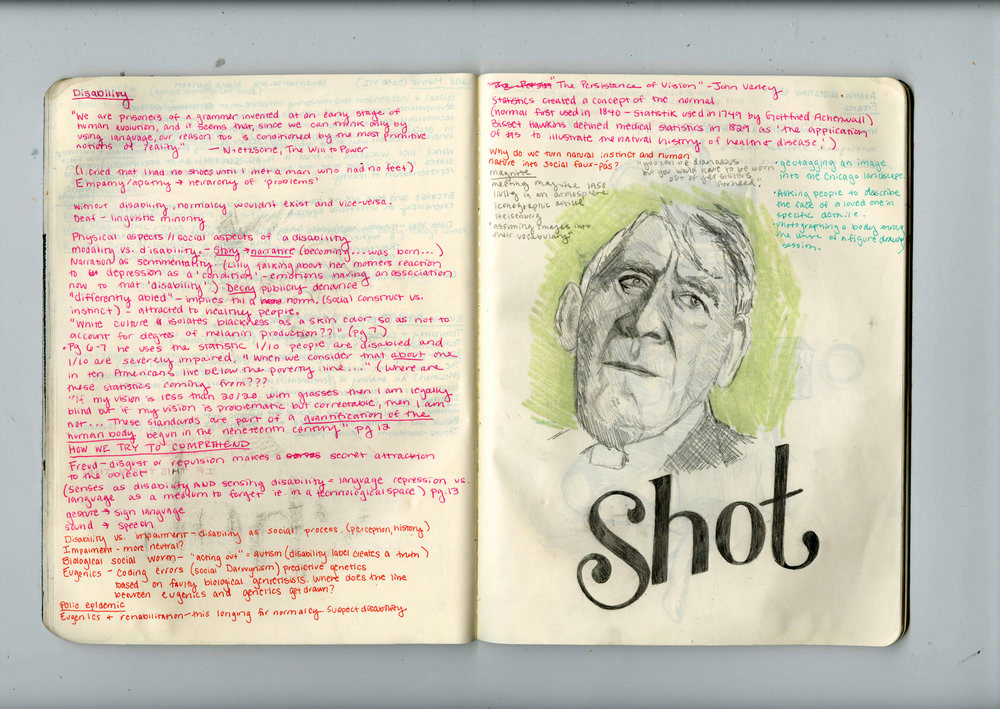 Disability
"We are prisoners of a grammer invented at an early stage of
human evolution, and it seems that, since we can think only by
using language, our reason too is conditioned by the most primitive
notions of reality" — Nietzsche, The Will to Power
(I cried that I had no shoes until I met a man who had no feet)
Empathy/apathy → heirarchy of 'problems'
without disability, normalcy wouldnt exist and vice-versa.
Deaf - linguistic minority
Physical aspects // social aspects of a disability
modality vs. disability. - Story → narrative (becoming... was born...)
Narration as sentimentality (Lilly talking about her mothers reaction
to depression as a 'condition' - emotions having an association
now to that 'disability') Decry publicly denounce
"differently abled" - implies still a norm. (Social construct vs.
instinct) - attracted to healthy people.
"White culture isolates blackness as a skin color so as not to
account for degrees of melanin production??" (pg 7)
• Pg 6-7 he uses the statistic 1/10 people are disabled and
1/10 are severely impaired, "When we consider that about one
in ten Americans live below the poverty line...." (Where are
these statistics coming from???
"If my vision is less than 20/20 with glasses then I am legally
blind but if my vision is problematic but correctable, then I am
not... These standards are part of a quantification of the
human body begun in the neneteenth century" pg 12
HOW WE TRY TO COMPREHEND
Freud - disgust or repulsion makes a secret attraction
to the object
(Senses as disability AND sensing disability = language repression vs.
language as a medium to forget ie. in a technological space) pg. 13
gesture → sign language
sound → speech
Disability vs. impairment - disability as social process. (perception, history)
Impairment - more neutral?
Biological social worth - "acting out" = autism (disability label creates a truth)
Eugenics - Coding errors (social Darwynism) predictive genetics
based on faulty biological geneticists. Where does the line
between eugenics and genetics get drawn?
Polio epidemic
Eugenics + rehabilitation - this longing for normalcy - Suspect disability
"The Persistance of Vision" - John Varley
Statistics created a concept of the normal
(normal first used in 1840 - Statistik used in 1749 by Gottfried Achenwall)
Bisset Hawkins defined medical statistics in 1829 as 'the application
of #s to illustrate the natural history of health & disease.')
Why do we turn natural instinct and human
nature into social faux-pas?
magritte
meeting magritte 1955
living in an atmosphere
iconographic
Heisenberg
"assuming images into
their vocabulary"
"you can be
but you would have to be born
out of your
forhead.
• geotagging an image
into the Chicago landscape.
• Asking people to describe
the face of a loved one in
specific detaile.
• photographing a body
the of a figure drawing
session.
Shot